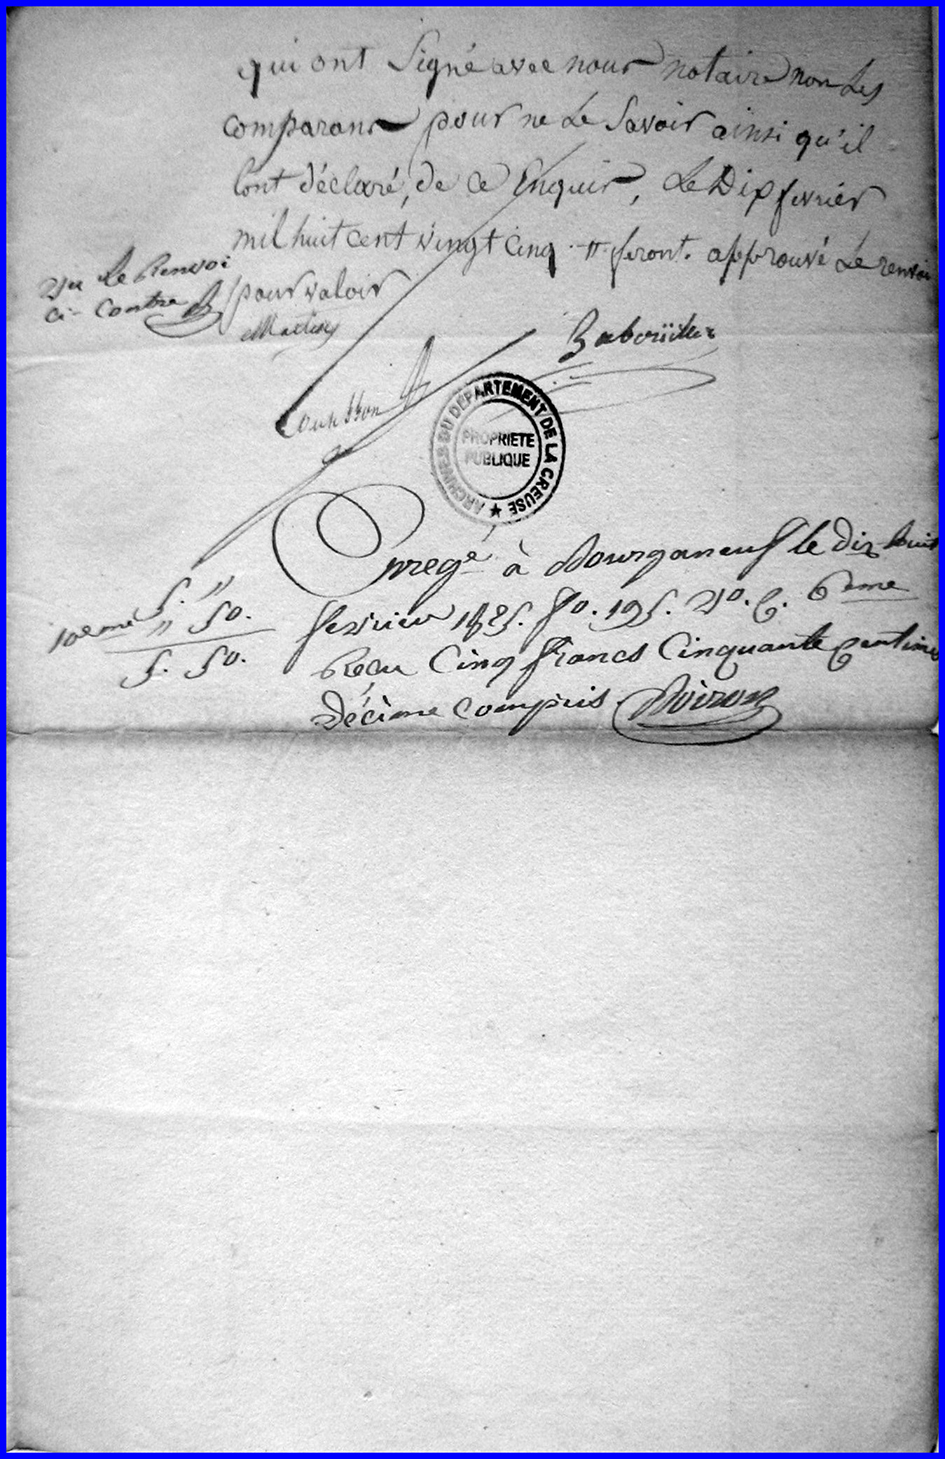 qui ont Signé avec nous notaire non Les
comparans pour ne Le Savoir ainsi qu'il
lont déclaré, de ce Enquis, Le Dix fevrier
mil huit cent vingt cinq feront. approuvé Le renvoi
pour valoir
vu Le Renvoi
ci-contre
Enregé à Bourganeuf le dix huit
fevrier 1825. fo. 195. Vo. C. 6eme
Reçu Cinq francs Cinquante Centimes
Décime Compris
5. "
10eme " 50.
5. 50.
ARCHIVES DU DÉPARTEMENT DE LA CREUSE
PROPRIETE
PUBLIQUE